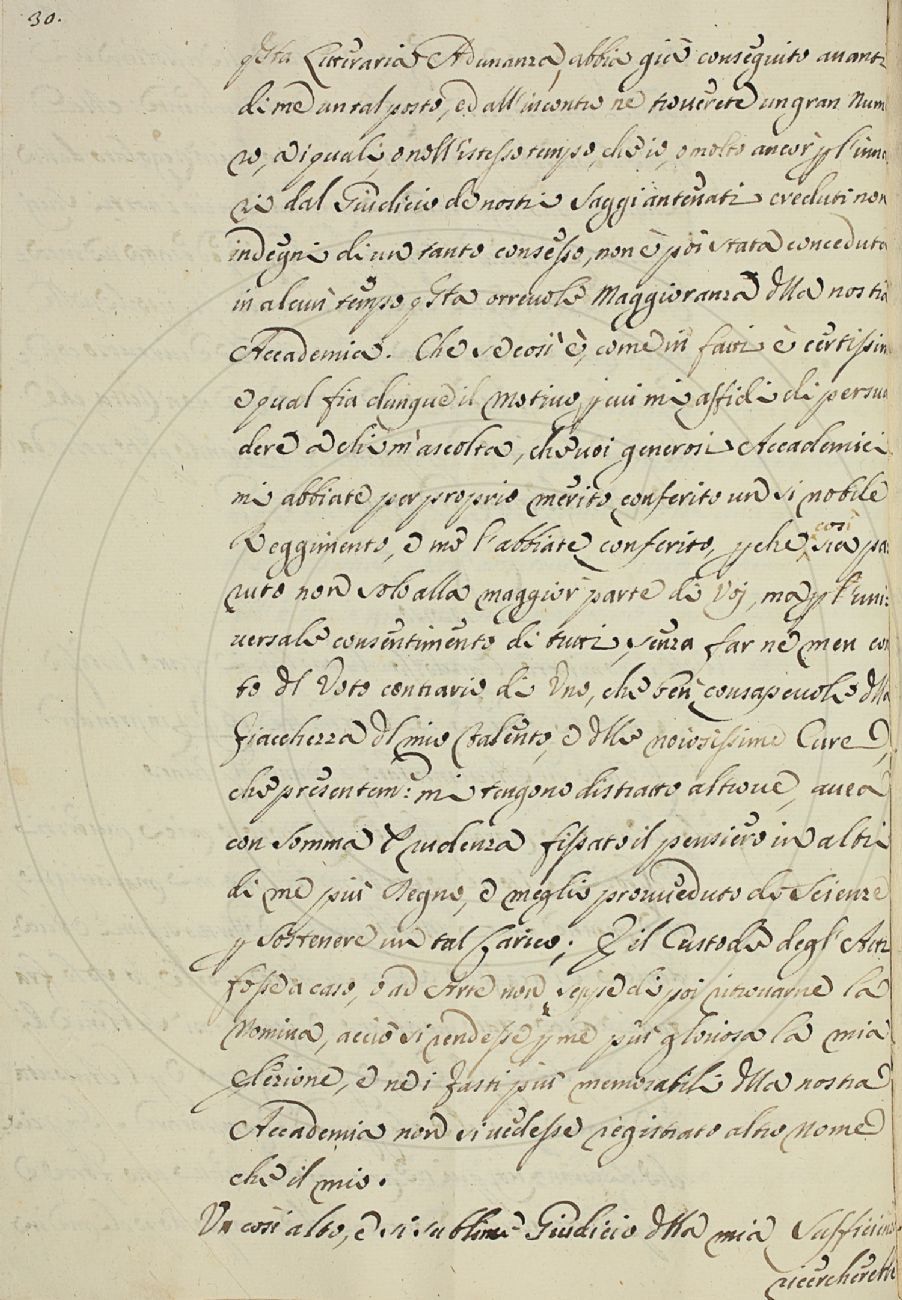 30.
qsta Litteraria Adunanza, abbia già conseguito avanti
di me un tal posto, ed all'incontro ne troverete un gran Num
ro, a i quali, o nell'istesso tempo, che io, o molto ancor p l'inna
zi dal Giudicio de nostri Saggi antenati creduti non
indegni di un tanto consesso, non è poi stata conceduta
in alcun tempo qsta orrevole Maggioranza dlla nostra
Accademia. Che se così è, come in fatti è certissim
e qual fia dunque il motivo, p cui mi affidi di persua
dere a chi m'ascolta, che voi generosi Accademici
mi abbiate per proprio merito conferito un si nobile
Reggimento, e me l'abbiate conferito, p che, così sia pa
ruto non solo alla maggior parte di Voi, ma p l'uni:
versale consentimento di tutti, senza far ne men con
to dl Voto contrario di Uno, che ben consapevole dlla
fiacchezza dl mio Talento, e dlle noiosissime Cure,
che presentem: mi tengono distratto altrove, avea
con somma Prudenza fissato il pensiero in altri
di me più Degno, e meglio provveduto di Scienze
p sostenere un tal Carico; E il Custode degl'Atti
fosse a caso, o ad Arte non seppe di poi ritrovarne la
Nomina, acciò si rendesse p me più gloriosa la mia
Elezione, e ne i fasti più memorabili dlla nostra
Accademia non si vedesse registrato altro Nome
che il mio.
Un così alto, e si sublime Giudicio dlla mia Sufficien
ricercherebbe